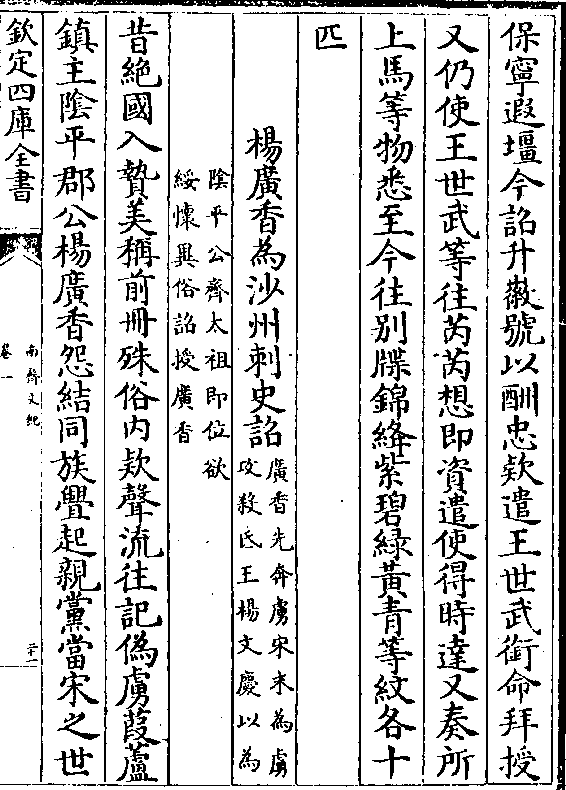 保寧遐壃今詔升徽號以酬忠欵遣王世武銜命拜授
又仍使王世武等往芮芮想即資遣使得時達又奏所
上馬等物悉至今往别牒錦絳紫碧綠黃青等紋各十
匹
楊廣香為沙州刺史詔
廣香先奔虜宋末為虜
攻殺氐王楊文慶以為
陰平公齊太祖即位欲
綏懷異俗詔授廣香
昔絶國入贄美稱前冊殊俗内欵聲流往記偽虜葭蘆
鎮主陰平郡公楊廣香怨結同族亹起親黨當宋之世
欽定四庫全書
南齊文紀
卷一
二十一